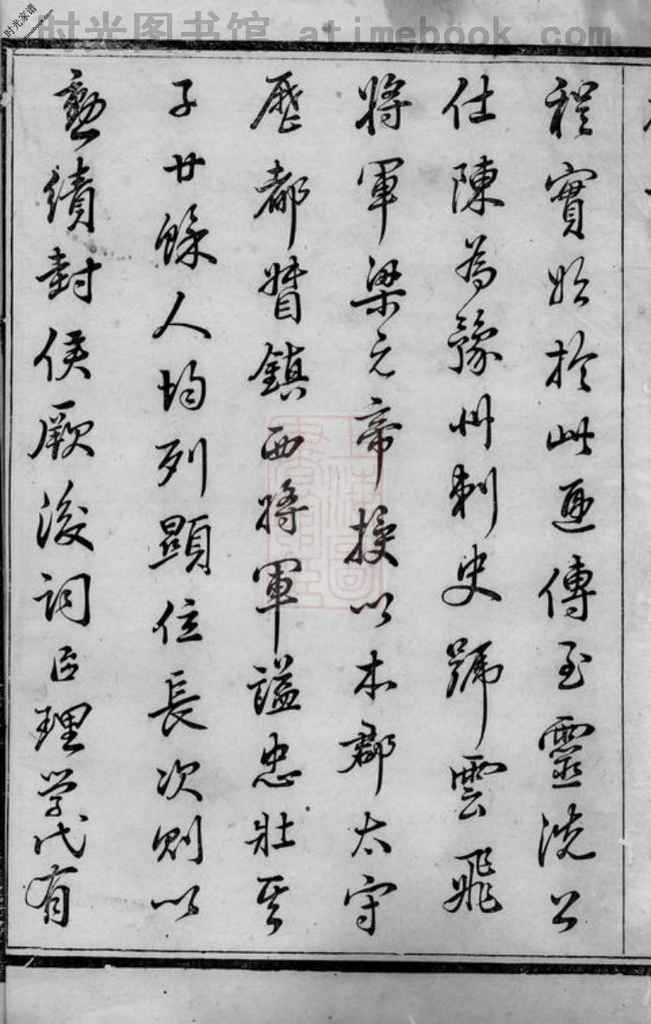 时光图书馆 www.atimebook.com
时光家谱
程實始於此再傳至靈洗公
仕陳為豫州刺史號雲飛
將軍梁元帝授以本郡太守
歷都督鎮西將軍謚忠壯其
子廿餘人均列顯位長次則以
勳績封侯厥後詞臣理學代有